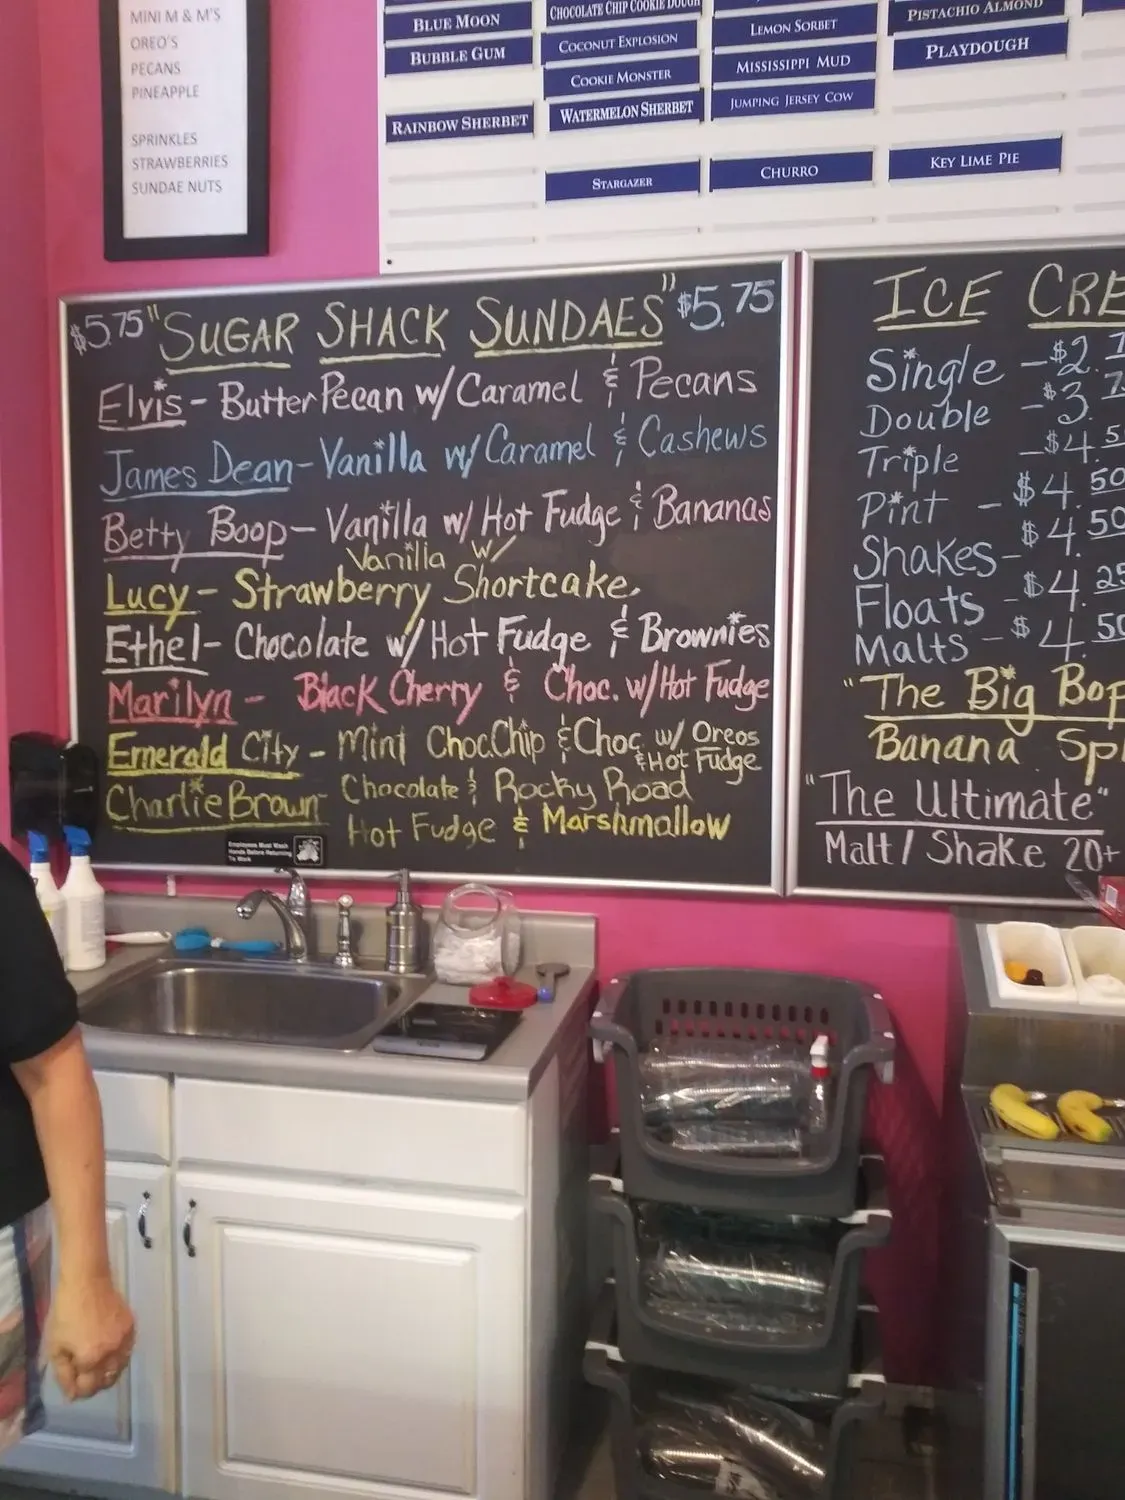 MINI M & M'S
OREO'S
PECANS
PINEAPPLE
SPRINKLES
STRAWBERRIES
SUNDAE NUTS
BLUE MOON
BUBBLE GUM
RAINBOW SHERBET
CHOCOLATE CHIP COOKIE DOUGH
COCONUT EXPLOSION
COOKIE MONSTER
WATERMELON SHERBET
STARGAZER
LEMON SORBET
MISSISSIPPI MUD
JUMPING JERSEY COW
CHURRO
PISTACHIO ALMOND
PLAYDOUGH
KEY LIME PIE
$5.75 "SUGAR SHACK SUNDAES" $5.75
Elvis - Butter Pecan w/ Caramel & Pecans
James Dean - Vanilla w/ Caramel & Cashews
Betty Boop - Vanilla w/ Hot Fudge & Bananas
Vanilla w/
Lucy - Strawberry Shortcake
Ethel - Chocolate w/ Hot Fudge & Brownies
Marilyn - Black Cherry & Choc. w/ Hot Fudge
Emerald City - Mint Choc.Chip & Choc w/ Oreos
& Hot Fudge
Charlie Brown - Chocolate & Rocky Road
Hot Fudge & Marshmallow
Employees Must Wash
Hands Before Returning
To Work
ICE CRE
Single - $2.
Double - $3.
Triple - $4.5
Pint - $4.50
Shakes - $4.50
Floats - $4.25
Malts - $4.50
"The Big Bop
Banana Sp
"The Ultimate"
Malt / Shake 20+